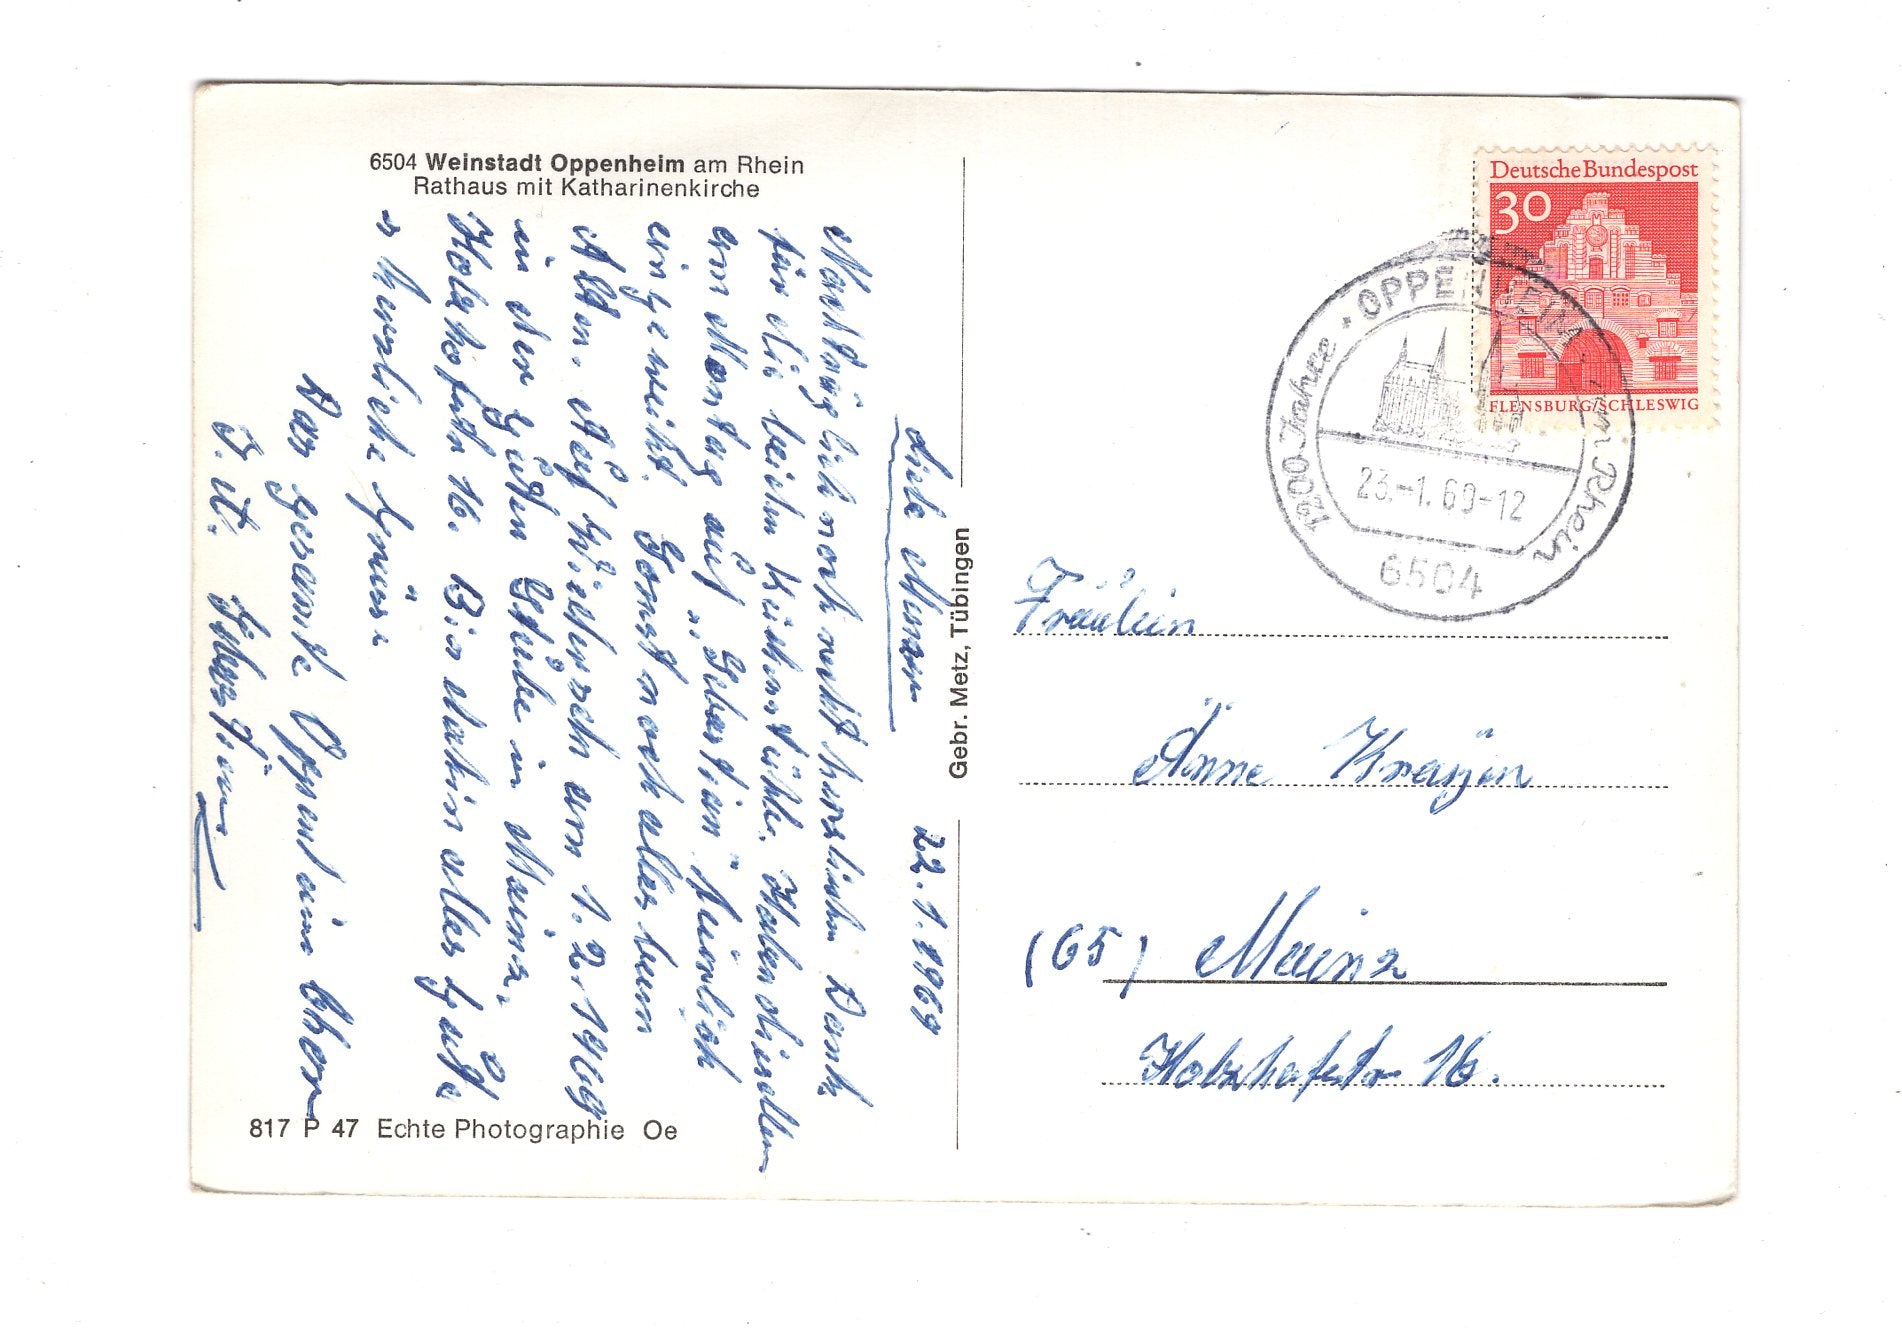 6504 Weinstadt Oppenheim am Rhein
Rathaus mit Katharinenkirche
22.1.1969
Liebe
Nachträglich noch recht herzlichen Dank
für die beiden Haben dieselben
am Montag auf „Sebastian" feierlich
eingeweiht. Sonst noch alles beim
Alten. Auf Wiedersehen am 1.2.1969
in der guten Stube in Mainz,
Holzhofstr 16. Bis dahin alles Gute
u herzliche Grüsse
Der gesamte Oppenheim
I.A.
817 P 47 Echte Photographie Oe
Gebr. Metz, Tübingen
Deutsche Bundespost
30
FLENSBURG/SCHLESWIG
1200 Jahre · OPPENHEIM · am Rhein
23.-1.69-12
6504
Fräulein
Änne
(65) Mainz
Holzhofstr 16.